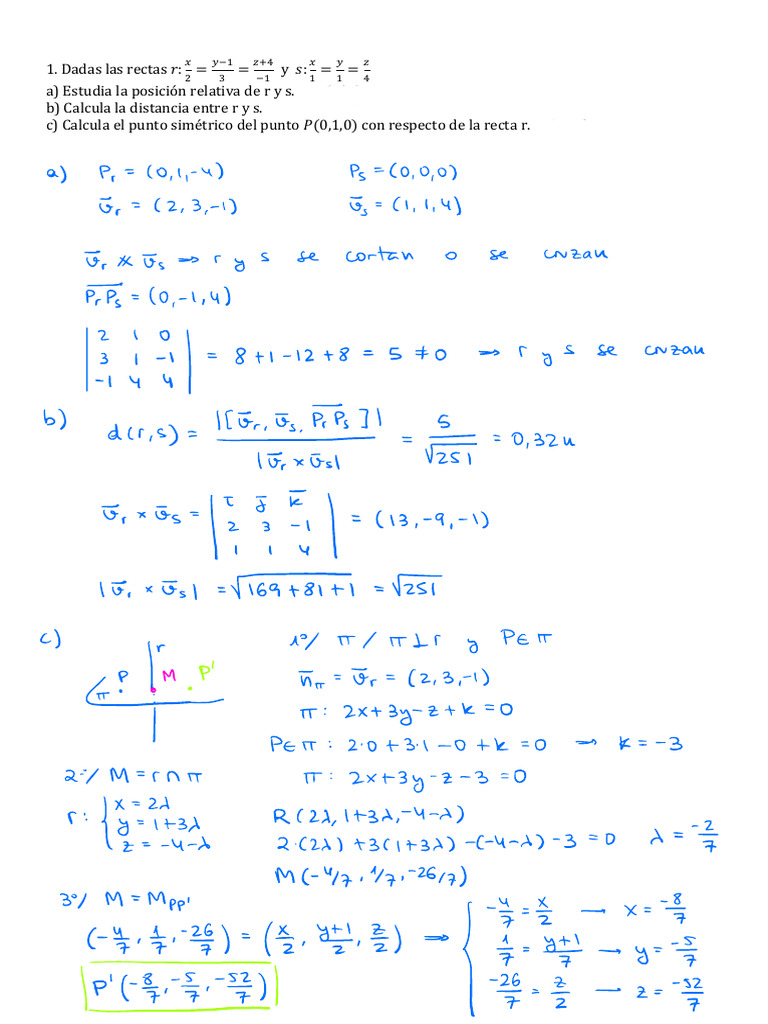 1. Dadas las rectas r: x/2 = (y−1)/3 = (z+4)/−1 y s: x/1 = y/1 = z/4
a) Estudia la posición relativa de r y s.
b) Calcula la distancia entre r y s.
c) Calcula el punto simétrico del punto P(0,1,0) con respecto de la recta r.
a) Pr = (0,1,-4) Ps = (0,0,0)
v̄r = (2,3,-1) v̄s = (1,1,4)
v̄r ∦ v̄s ⇒ r y s se cortan o se cruzan
PrPs = (0,-1,4)
| 2 1 0 |
| 3 1 -1 | = 8+1-12+8 = 5 ≠ 0 ⇒ r y s se cruzan
| -1 4 4 |
b) d(r,s) = |[v̄r, v̄s, PrPs]| / |v̄r × v̄s| = 5/√251 = 0,32u
v̄r × v̄s = | ī j̄ k̄ |
| 2 3 -1 | = (13,-9,-1)
| 1 1 4 |
|v̄r × v̄s| = √169+81+1 = √251
c) r P M P' π
1º/ π / π ⊥ r y P ∈ π
n̄π = v̄r = (2,3,-1)
π: 2x+3y-z+k=0
P∈π: 2·0+3·1-0+k=0 → k=-3
π: 2x+3y-z-3=0
2º/ M = r∩π
r: { x=2λ
y=1+3λ
z=-4-λ
R(2λ,1+3λ,-4-λ)
2·(2λ)+3(1+3λ)-(-4-λ)-3=0 λ = -2/7
M(-4/7,1/7,-26/7)
3º/ M = MPP'
(-4/7, 1/7, -26/7) = (x/2, y+1/2, z/2) ⇒ { -4/7 = x/2 → x = -8/7
1/7 = y+1/7 → y = -5/7
-26/7 = z/2 → z = -52/7
P'(-8/7, -5/7, -52/7)